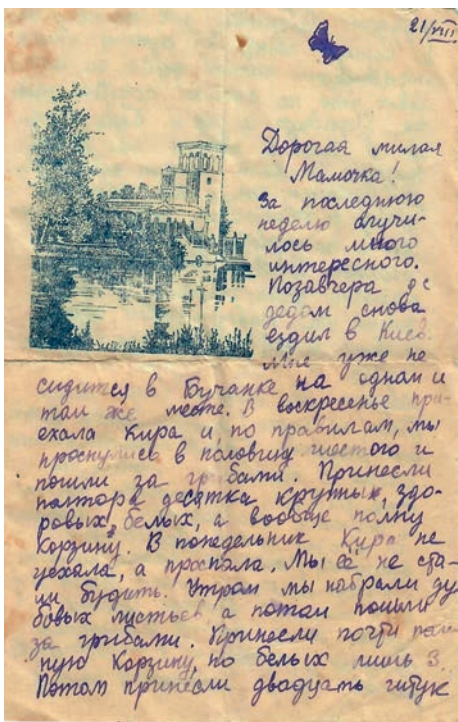 21/VIII
Дорогая милая
Мамочка!
За последнюю
неделю случи-
лось много
интересного.
Позавчера я с
дедом снова
ездил в Киев.
Мне уже не
сидится в Бучанке на одном и
том же месте. В воскресенье при-
ехала Кира и, по правилам, мы
проснулись в половину шестого и
пошли за грибами. Принесли
полтора десятка крупных, здо-
ровых, белых, а вообще полну
корзину. В понедельник Кира не
уехала, а проспала. Мы её не ста-
ли будить. Утром мы набрали ду
бовых листьев, а потом пошли
за грибами. Принесли почти пол-
ную корзину, но белых лишь 3.
Потом принесли двадцать штук